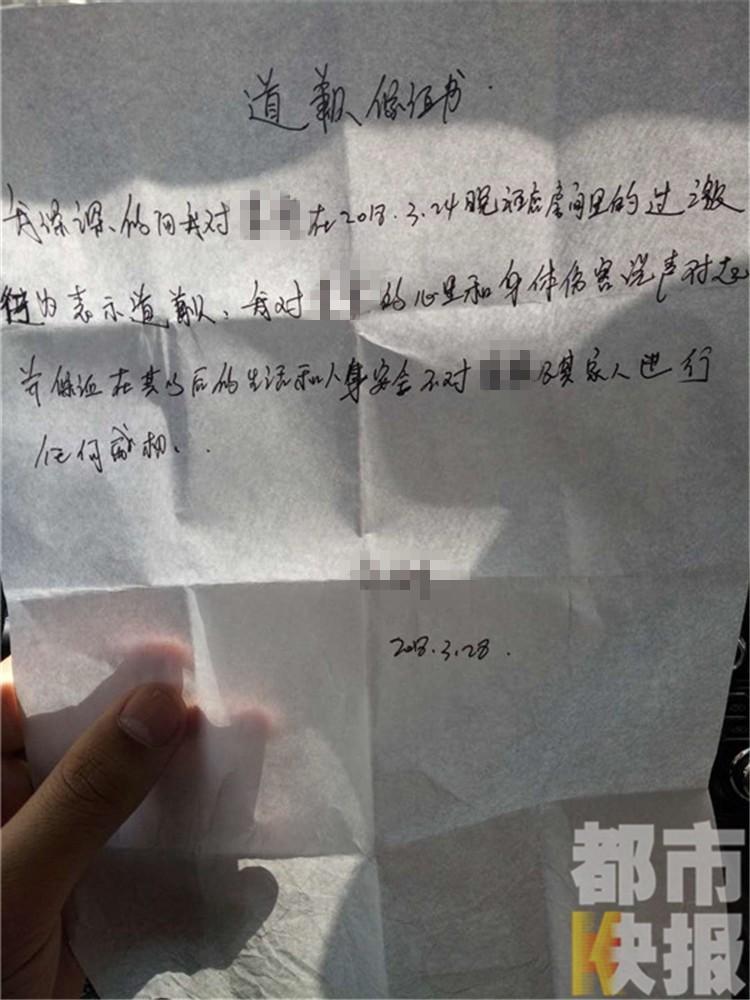 道歉保证书.
我深深的向我对 在2018.3.24晚酒店房间里的过激
行为表示道歉,我对 的心里和身体伤害说声对起
并保证在其以后的生活和人身安全不对 及其家人进行
任何威胁..
2018.3.28.
都市
快报